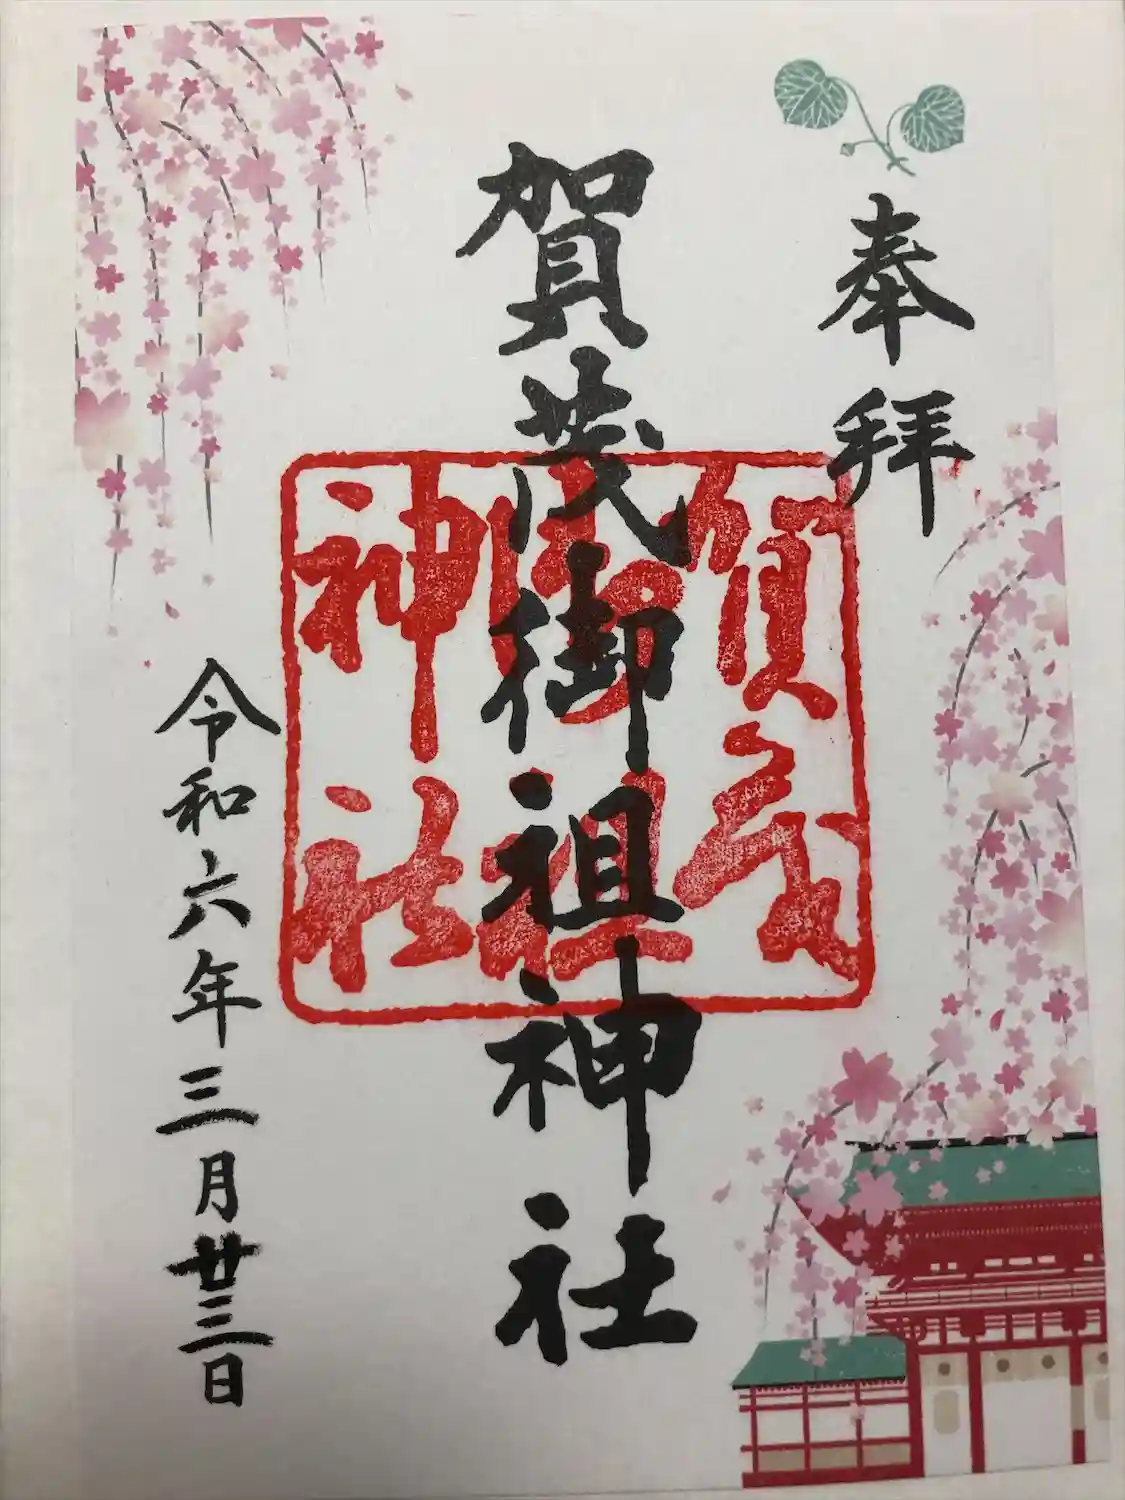 奉拝
賀茂御祖神社
賀茂
御祖
神社
令和六年三月廿三日